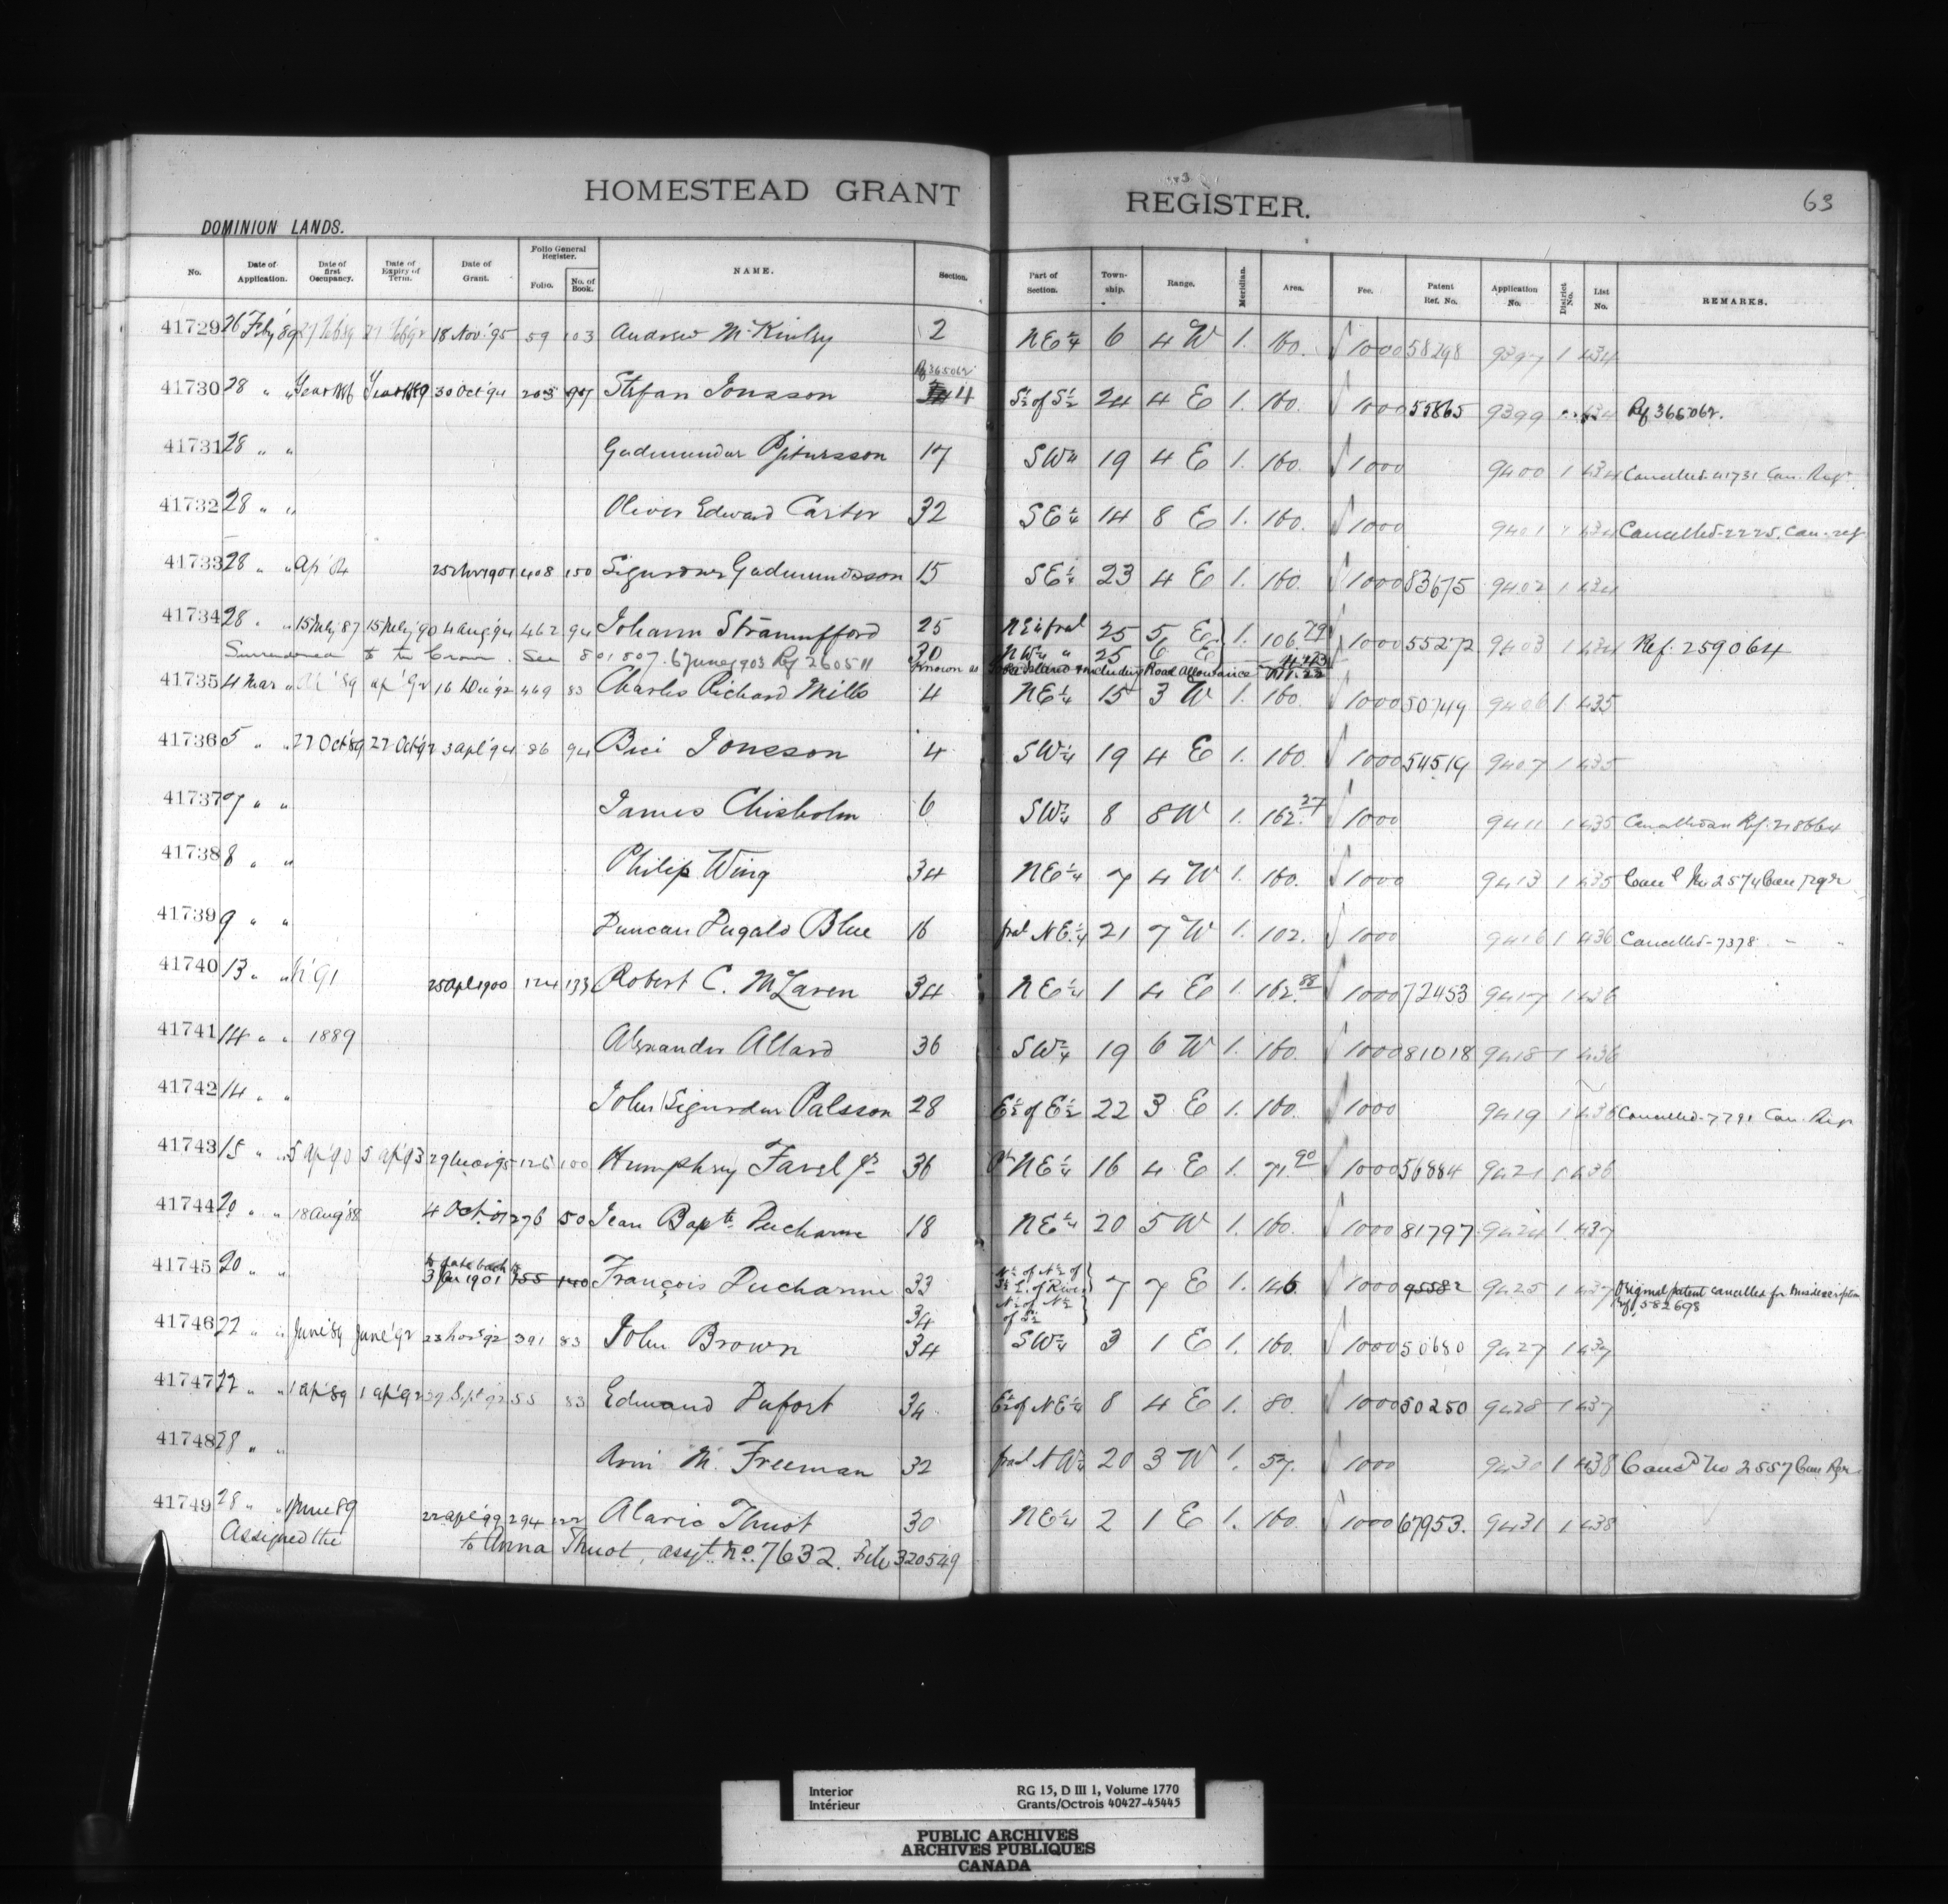 63
HOMESTEAD GRANT REGISTER.
DOMINION LANDS.
No. Date of Application. Date of first Occupancy. Date of Expiry of Term. Date of Grant. Folio General Register. Folio. No. of Book. NAME. Section. Part of Section. Town-ship. Range. Meridian. Area. Fee. Patent Ref. No. Application No. District No. List No. REMARKS.
41729 26 Feby '89 27 Feb 89 27 Feb 92 18 Nov. '95 59 103 Andrew McKinley 2 NE¼ 6 4 W 1. 160. 1000 58298 9397 1 434
Ref 365062
41730 28 " " Year 1886 Year 1889 30 Oct '94 203 97 Stefan Jonsson 4 S½ of S½ 24 4 E 1. 160. 1000 55865 9399 434 Ref 365062.
41731 28 " " Gudmundur Pjetursson 17 SW¼ 19 4 E 1. 160. 1000 9400 1 434 Cancelled 41731 Can. Regr
41732 28 " " Oliver Edward Carter 32 SE¼ 14 8 E 1. 160. 1000 9401 434 Cancelled-2225. Can. reg
41733 28 " " Ap' 84 1901 408 150 Sigurdur Gudmundsson 15 SE¼ 23 4 E 1. 160. 1000 83675 9402 1 434
41734 28 " " 15 July 87 15 July 90 4 Aug '94 462 94 Johann Straumfford 25 NE¼ fral 25 5 E 1. 106.79 1000 55272 9403 1 434 Ref. 259064
Surrendered to the Crown. See 801807. 6 June 1903 Ref 260511 30 NW¼ " 25 6 E
known as Island including Road Allowance
41735 4 Mar " '89 ap' '92 16 Dec '92 469 83 Charles Richard Mills 4 NE¼ 15 3 W 1. 160. 1000 50749 9406 1. 435
41736 5 " " 27 Oct '89 27 Oct '92 3 apl '94 86 94 Jonsson 4 SW¼ 19 4 E 1. 160. 1000 54519 9407 1 435
41737 7 " " James Chisholm 6 SW¼ 8 8 W 1. 162.27 1000 9411 1 435 Ref. 218664
41738 8 " " Philip Wing 34 NE¼ 7 4 W 1. 160. 1000 9413 1 435 Cancd No 2574 Can Regr
41739 9 " " Duncan Dugald Blue 16 fral NE¼ 21 7 W 1. 102. 1000 9416 1 436 Cancelled-7378 " "
41740 13 " " '91 25 Apl 1900 124 133 Robert C. McLaren 34 NE¼ 1 4 E 1. 162.88 1000 72453 9417 1 436
41741 14 " " 1889 Alexander Allard 36 SW¼ 19 6 W 1. 160. 1000 81018 9418 1 436
41742 14 " " John Sigurdur Palsson 28 E½ of E½ 22 3 E 1. 160. 1000 9419 1 436 Cancelled-7791 Can. Regr
41743 15 " " 5 ap' 90 5 ap' 93 29 95 126 100 Humphrey Favel Jr 36 NE¼ 16 4 E 1. 71.90 1000 56884 9421 1 436
41744 20 " " 18 Aug '88 4 Oct. 01 276 50 Jean Bapte Ducharme 18 NE¼ 20 5 W 1. 160. 1000 81797 9424 1 437
41745 20 " " to date back to 3 Jan 1901 355 140 François Ducharme 33 N½ of N½ of S½ E. of River 7 7 E 1. 146. 1000 95582 9425 1 437 Original patent cancelled for misdescription
34 N½ of N½ of S½ Ref 582698
41746 22 " " June '89 June '92 23 Nov '92 391 83 John Brown 34 SW¼ 3 1 E 1. 160. 1000 50680 9427 1 437
41747 22 " " 1 ap' 89 1 ap' 92 29 Sept 92 55 83 Edmund Dufort 34 E½ of NE¼ 8 4 E 1. 80. 1000 50250 9428 1 437
41748 28 " " M. Freeman 32 fral NW¼ 20 3 W 1. 57. 1000 9430 1 438 Cancd No 2557 Can Regr
41749 28 " " 1 June 89 22 apl '99 294 122 Alaric Thuot 30 NE¼ 2 1 E 1. 160. 1000 67953. 9431 1 438
Assigned the to Anna Thuot, assgt. No. 7632. File 320549
Interior RG 15, D III 1, Volume 1770
Intérieur Grants/Octrois 40427-45445
PUBLIC ARCHIVES
ARCHIVES PUBLIQUES
CANADA